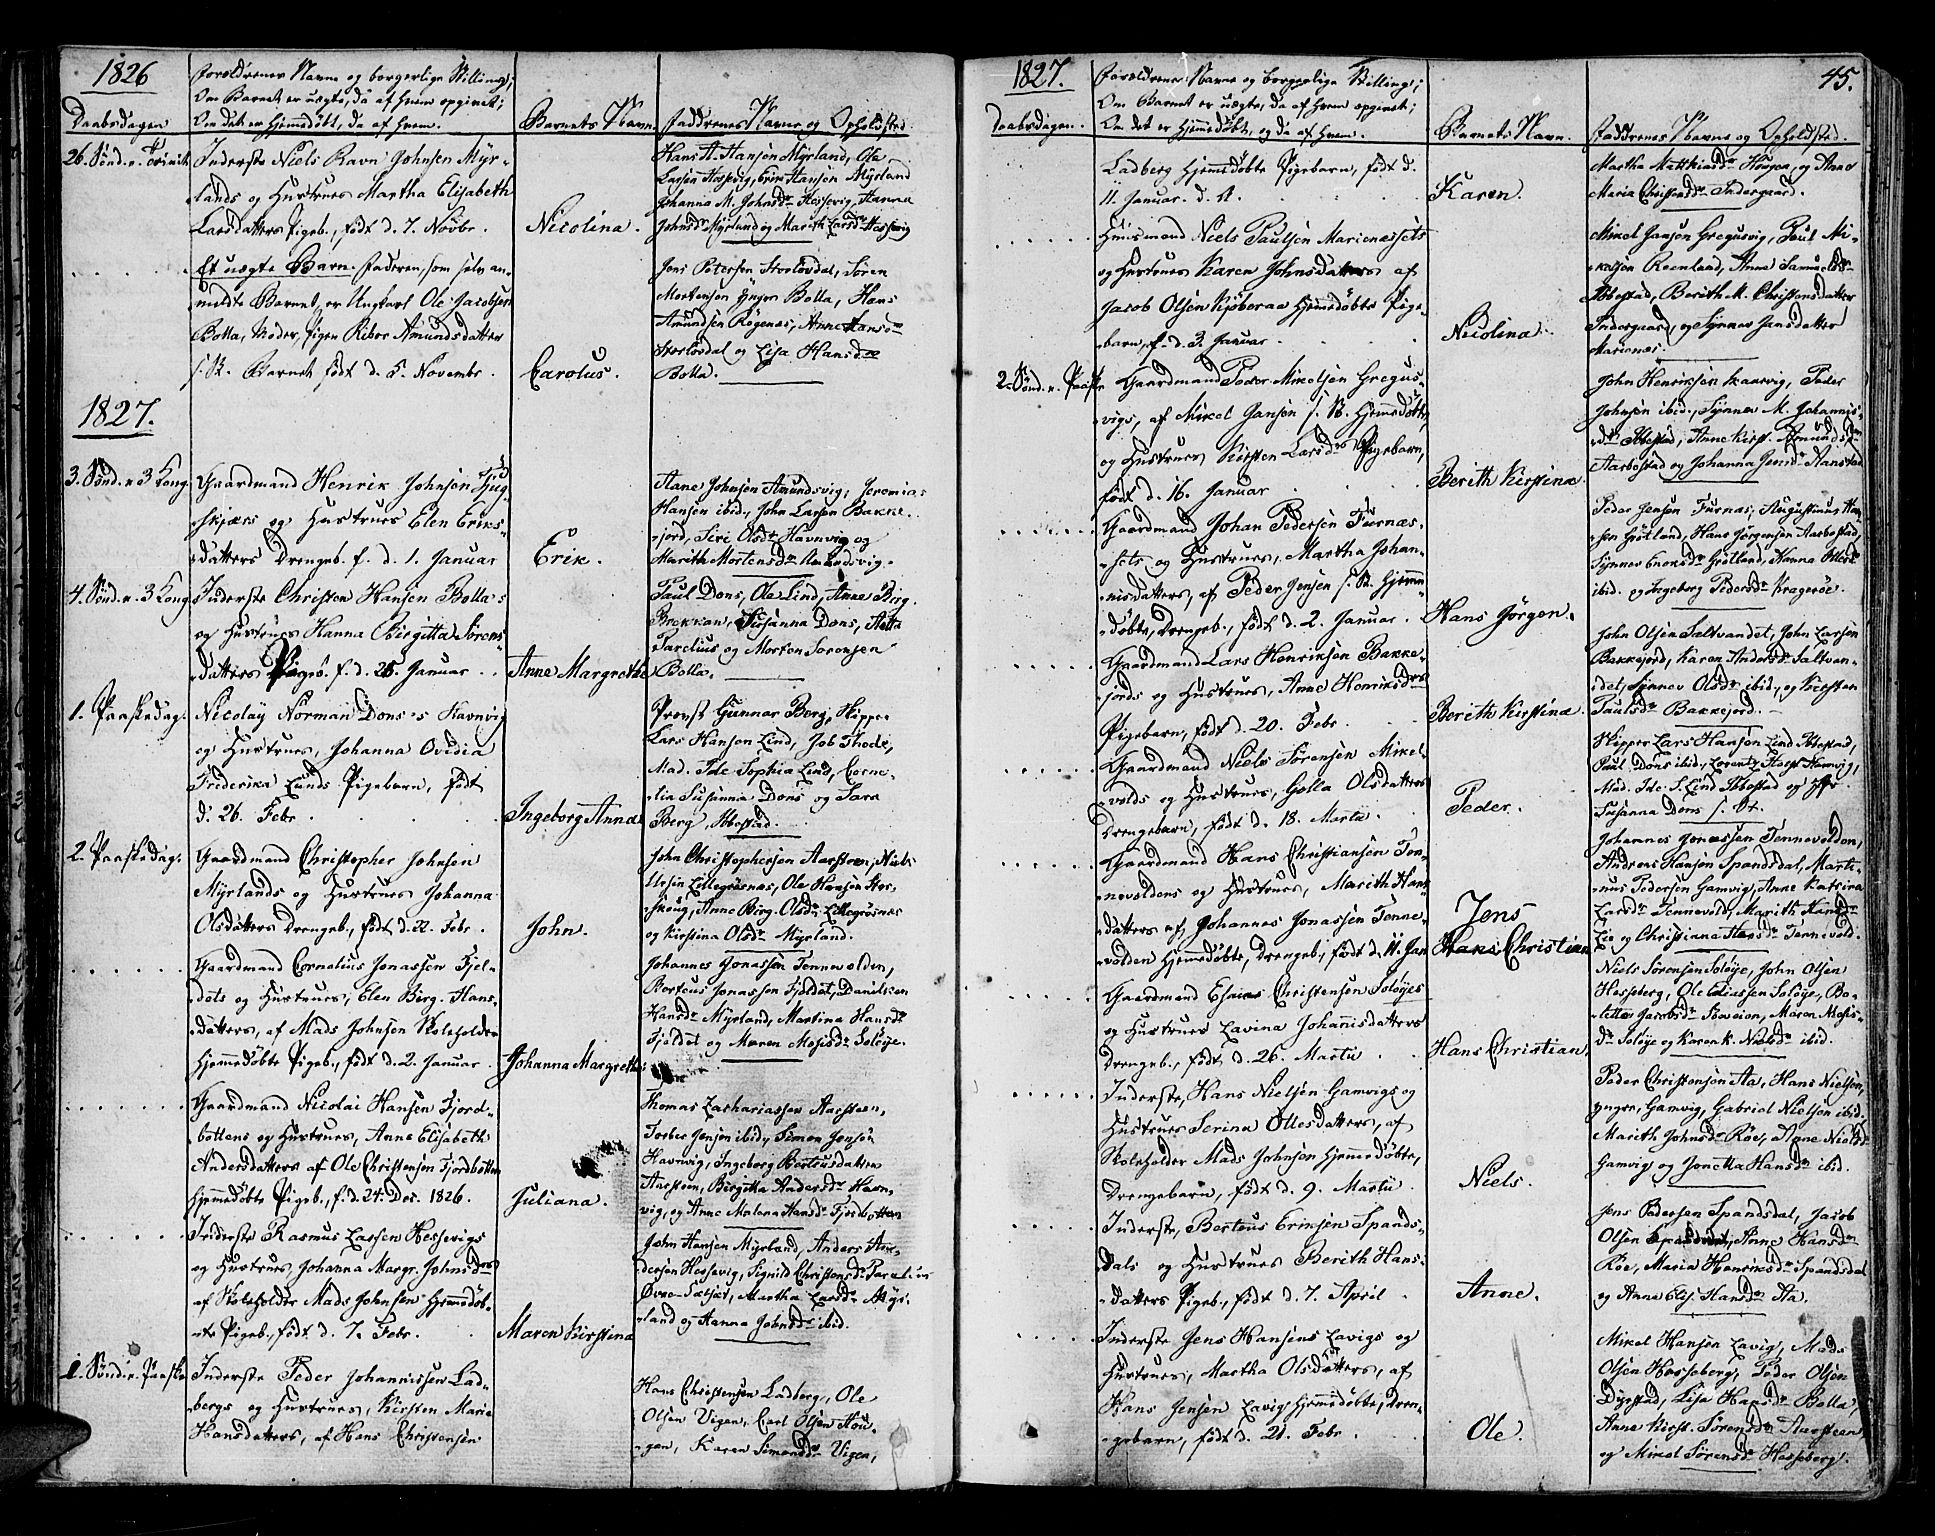 1826
Forældrenes Navne og borgerlige Stilling;
Om Barnet er uægte, da af hvem opgivet;
Daabsdagen
Om det er hjemmedøbt, da af hvem.
Barnets Navn.
Faddrenes Navne og Opholdsted.
26. Sønd. n. Trinit.
Inderste Niels Ravn Johnsen Myr-
lands og Hustrues Martha Elisabeth
Larsdatters Pigeb., født d. 7. Novbr.
Nicolina.
Hans A. Hansen Myrland, Ole
Larsen Hessevig, Erik Hansen Myrland
Johanna M. Johnsdr. Hessevig, Hanna
Johnsdr. Myrland og Marith Larsdr. Hessevig
Et uægte Barn. Faderen, som selv an-
meldte Barnet, er Ungkarl Ole Jacobsen
Bolla, Moder, Pigen Ribor Amundsdatter
s. St. Barnet født d. 5. Novembr.
Carolus.
Jens Petersen Storlovdal, Søren
Mortensen Yngre Bolla, Hans
Amundsen Røgenæs, Anne Hansdr
Storlovdal og Lisa Hansdr
Bolla.
1827.
3. Sønd. n. 3 Kong.
Gaardmand Henrik Johnsen
skjærs og Hustrues Elen Eriks-
datters Drengeb. f. d. 1. Januar
Erik.
Aane Johnsen Amundsvig, Jeremias
Hansen ibid., John Larsen Bakke-
jord, Siri Olsdr. Havnvig og
Marith Mortensdr. Amundsvig.
4. Sønd. n. 3 Kong.
Inderste Christen Hansen Bolla's
og Hustrues Hanna Birgitta Sørens-
datters Pigeb. f. d. 25. Januar
Anne Margrethe
Paul Dons, Ole Lind, Anne Birg.
Brekkan, Susanna Dons, Hetta
Parelius og Morten Sørensen
Bolla.
1. Paaskedag.
Nicolay Norman Dons's Havnvig
og Hustrues, Johanna Ovidia
Frederika Lunds Pigebarn, født
d. 26. Febr.
Ingeborg Anna
Provst Gunnar Berg, Skipper
Lars Hansen Lind, Job Thode,
Mad. Ide Sophia Lind, Corne-
lia Susanna Dons og Sara
Berg, Ibbestad.
2. Paaskedag.
Gaardmand Christopher Johnsen
Myrlands og Hustrues Johanna
Olsdatters Drengeb., født d. 22. Febr.
John.
John Christophersen Aarsteen, Niels
Ursin Lillegrøsnæs, Ole Hansen Stor-
skoug, Anne Birg. Olsdr. Lillegrøsnæs
og Kirstina Olsdr. Myrland.
Gaardmand Cornelius Jonassen Fjel-
dets og Hustrues, Elen Birg. Hans-
datters, af Mads Johnsen Skoleholder
hjemmedøbte Pigeb., født d. 2. Januar
Johanna Margreth.
Johannes Jonassen Tennevolden,
Berteus Jonassen Fjeldet, Danilken
Hansdr. Myrland, Martina Hansdr.
Fjeldet og Maren Mosisdr. Soløye.
Gaardmand Nicolai Hansen Fjord-
bottens og Hustrues, Anne Elisabeth
Andersdatters af Ole Christensen Fjordbotten
hjemmedøbte Pigeb., f. d. 24. Dec. 1826.
Juliana.
Thomas Zachariassen Aarsteen,
Torber Jensen ibid., Simon Jensen
Havnvig, Ingeborg Berteusdatter
Aarsteen, Birgitta Andersdr. Havn-
vig, og Anne Malena Hansdr. Fjordbotten
Inderste Rasmus Larsen Hessevigs
og Hustrues, Johanna Margr. Johnsdrs
af Skoleholder Mads Johnsen hjemmedøb-
te Pigeb., født d. 7. Febr.
Maren Kirstina
John Hansen Myrland, Anders An-
dersen Hessevig, Signild Christensdr. Parelius
Øvre-Salset, Martha Larsdr. Myr-
land og Hanna Johnsdr. ibid.
1. Sønd. n. Paaske
Inderste Peder Johannissen Lad-
bergs og Hustrues, Kirsten Marie
Hansdatters, af Hans Christensen
Hans Christensen Ladberg, Ole
Olsen Vigen, Carl Olsen Hou-
gen, Karen Simonsdr. Vigen,
1827.
45.
Forældrenes Navne og borgerlige Stilling;
Om Barnet er uægte, da af hvem opgivet;
Daabsdagen.
Om det er hjemmedøbt, og da af hvem.
Barnets Navn.
Faddrenes Navne og Opholdsted.
Ladberg hjemmedøbte Pigebarn, født d.
11. Januar. d. A.
Karen.
Martha Matthiasdr. Hougen, og Anne
Maria Christensdr. Indergaard.
Huusmand Niels Paulsen Marienæssets
og Hustrues Karen Johnsdatters af
Jacob Olsen Kjøberaa hjemmedøbte Pige-
barn, f. d. 3. Januar.
Nicolina.
Mikel Jansen Gregusvig, Paul Mi-
kelsen Reenland, Anne Samuelsdr.
Ibbestad, Berith M. Christensdatter
Indergaard, og Synnev Jansdatter
Marienæs.
2. Sønd. n. Paaske
Gaardmand Peder Mikelsen Gregus-
vigs, af Mikel Jansen s. St. hjemmedøbte,
og Hustrues Kirsten Larsdrs Pigebarn,
født d. 16. Januar
Berith Kirstina.
John Henriksen Kaarvig, Peder
Johnsen ibid., Synnev M. Johannis-
dr. Ibbestad, Anne Kirst. Amundsdr.
Aarbostad og Johanna Jensdr. Aanstad
Gaardmand Johan Pedersen Furnæs-
sets og Hustrues, Martha Johan-
nisdatters, af Peder Jensen s. St. hjemme-
døbte, Drengeb., født d. 2. Januar.
Hans Jørgen.
Peder Jensen Furnæs, Augustinus Han-
sen Grøtland, Hans Jørgensen Aarbostad,
Synnev Enoksdr. Grøtland, Hanna Ollesdr
ibid. og Ingeborg Pedersdr. Kragerøe.
Gaardmand Lars Henriksen Bakke-
jords og Hustrues, Anne Henriksdrs
Pigebarn, født d. 20. Febr.
Berith Kirstina.
John Olsen Saltvandet, John Larsen
Bakkejord, Karen Andersdr. Saltvan-
det, Synnev Olsdr. ibid., og Kirsten
Paulsdr. Bakkejord.
Gaardmand Niels Sørensen Mikel-
volds og Hustrues, Golla Olsdatters
Drengebarn, født d. 18. Martii.
Peder.
Skipper Lars Hansen Lind Ibbestad,
Paul Dons ibid., Lorentz Hoep Havnvig,
Mad. Ide S. Lind Ibbestad og Jfr.
Susanna Dons s. St.
Gaardmand Hans Christiansen Ten-
nevoldens og Hustrues, Marith Hans-
datters af Johannes Jonassen Tenne-
volden hjemmedøbte, Drengeb., født d. 11. Jan
Jens
Hans Christian
Johannes Jonassen Tennevolden,
Andreas Hansen Spandsdal, Marti-
nus Pedersen Gamvig, Anne Katrina
Larsdr. Tennevold, Marith Hansdr.
Lie og Christiana Hansdr. Tennevold.
Gaardmand Esaias Christensen Soløyes
og Hustrues Lavina Johannisdatters
Drengeb., født d. 26. Martii
Hans Christian.
Niels Sørensen Soløye, John Olsen
Hesseberg, Ole Eliassen Soløye, Bo-
lette Jacobsdr. Skoveien, Maren Mosis-
dr. Soløye og Karen K. Nielsdr. ibid.
Inderste, Hans Nielsen Gamvigs og
Hustrues Serina Ollesdatters, af
Skoleholder Mads Johnsen hjemmedøbte,
Drengebarn, født d. 9. Martii
Niels.
Peder Christensen Aa, Hans Nielsen,
yngre, Gamvig, Gabriel Nielsen ibid.
Marith Johnsdr. Røe, Anne Nielsdr
Gamvig og Jonetta Hansdr. ibid.
Inderste, Berteus Eriksen Spands-
dals og Hustrues Berith Hans-
datters Pigeb., født d. 7. April
Anne.
Jens Pedersen Spandsdal, Jacob
Olsen Anne Hansdr
Røe, Maria Henriksdr. Spandsdal
og Anne Elis. Hansdr. Aa.
Inderste Jens Hansens Lavigs og
Hustrues, Martha Olsdatters, af
Hans Jensen Lavig hjemmedøbte, Dren-
gebarn, født d. 21. Febr.
Ole.
Mikel Hansen Lavig, Mads
Olsen Hesseberg, Peder Olsen
Dyrstad, Lisa Hansdr. Bolla,
Anne Kirst. Sørensdr. Aarsteen,
og Mikel Sørensdr. Hesseberg.